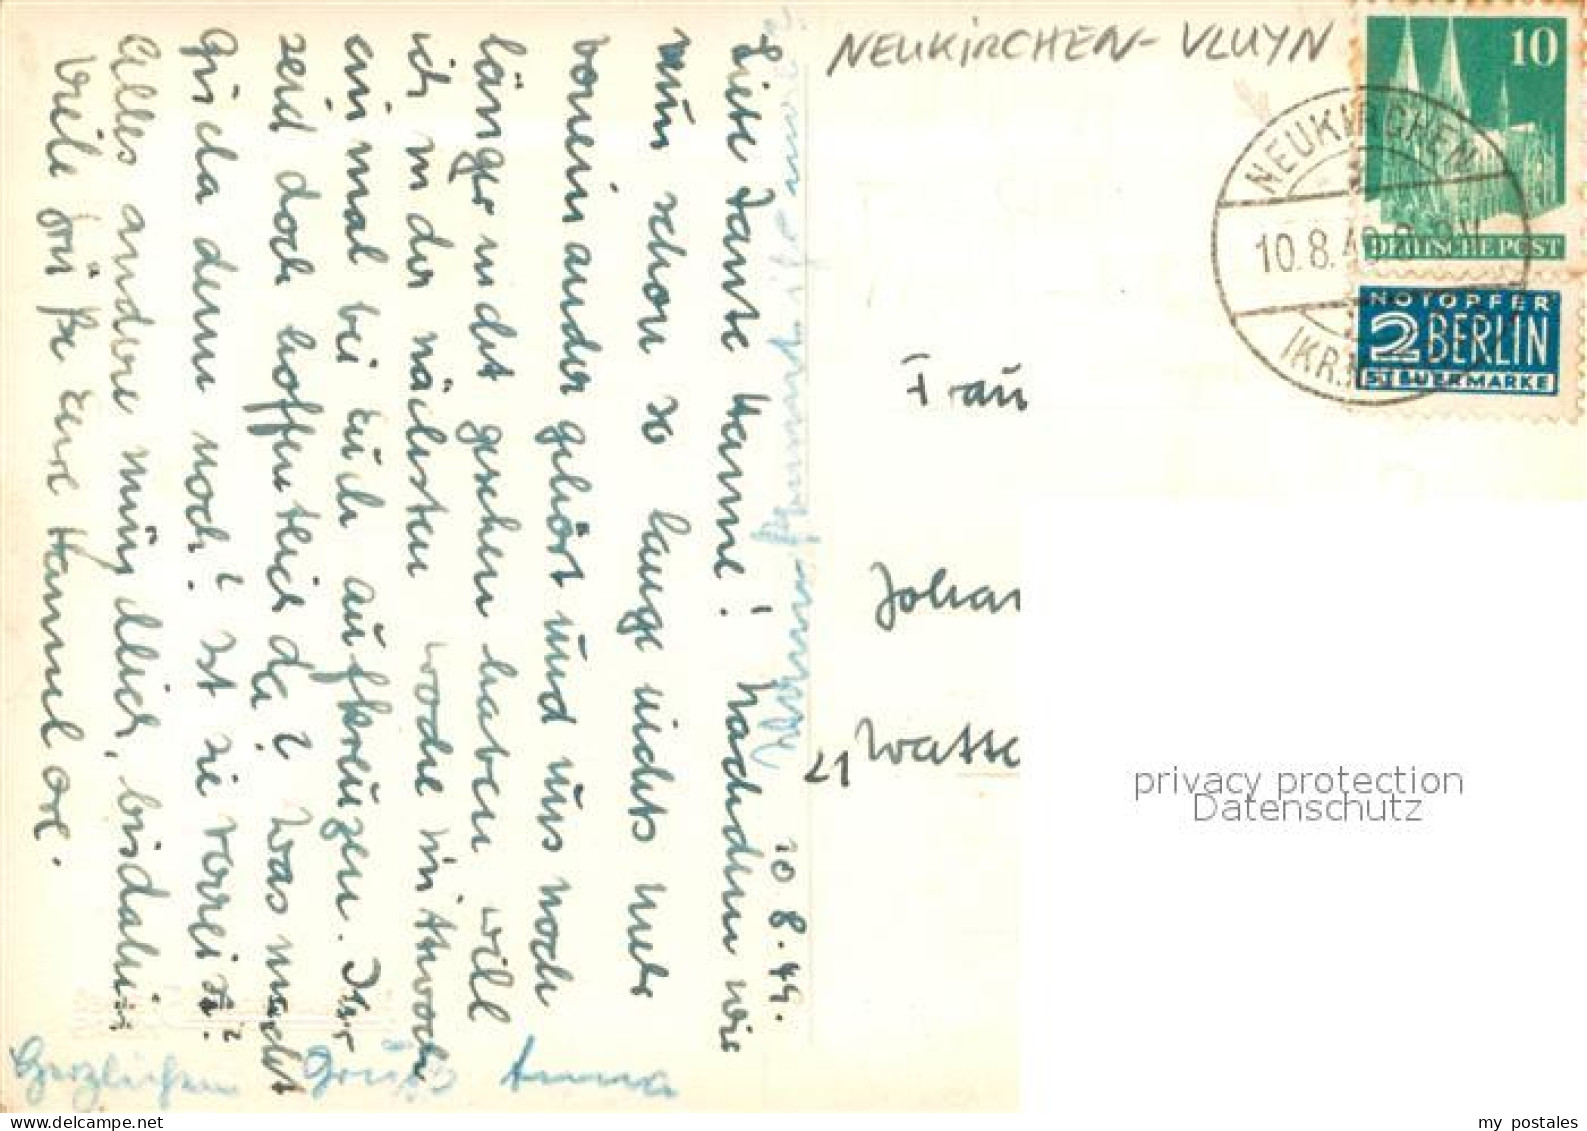 NEUKIRCHEN-VLUYN
10
DEUTSCHE POST
NOTOPFER
2 BERLIN
STEUERMARKE
NEUKIRCHEN
10.8.49
(KR.
Frau
Johan
21 Watte
privacy protection
Datenschutz
10.8.49.
Liebe Tante Hanne! Nachdem wir
nun schon so lange nichts mehr
voneinander gehört und uns noch
länger nicht gesehen haben will
ich in der nächsten Woche Mittwoch
einmal bei Euch aufkreuzen. Ihr
seid doch hoffentlich da? Was macht
Gisela denn noch? Ist sie verreist?
Alles andere mündlich, bis dahin
viele Grüße Eure Hannelore.
Herzlichen Gruß Anna
my postales